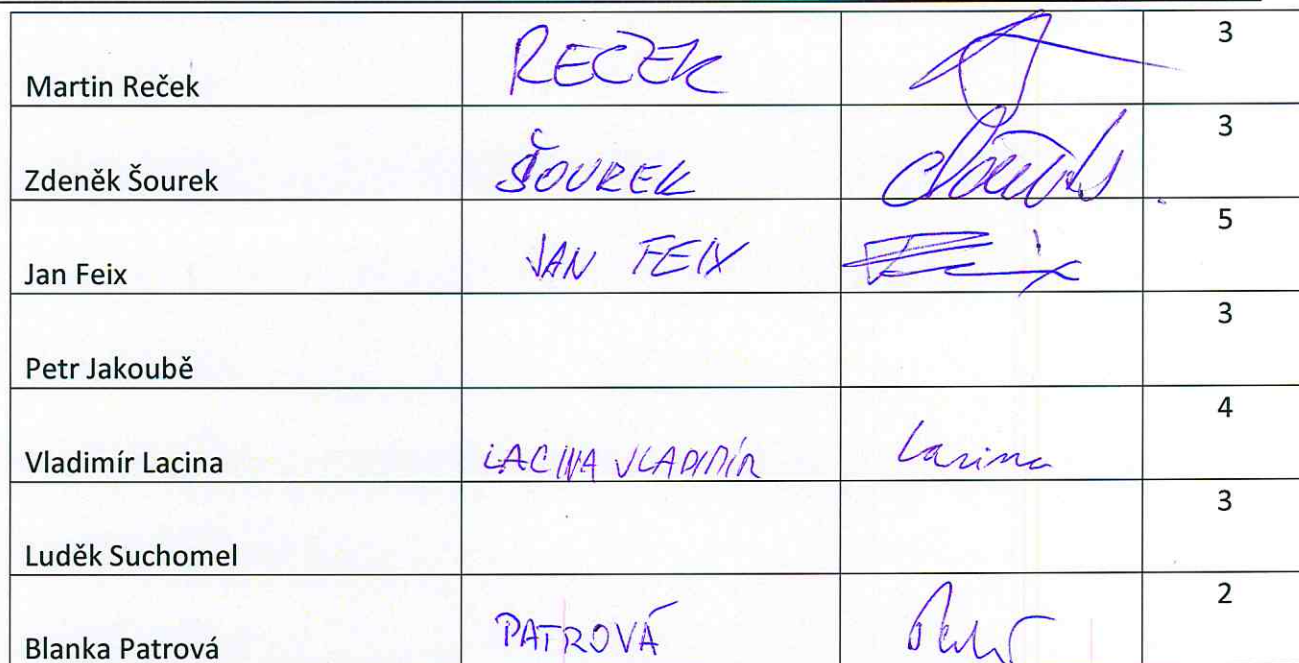 Martin Reček REČEK 3
Zdeněk Šourek ŠOUREK 3
Jan Feix JAN FEIX Feix 5
Petr Jakoubě 3
Vladimír Lacina LACINA VLADIMÍR Lacina 4
Luděk Suchomel 3
Blanka Patrová PATROVÁ 2